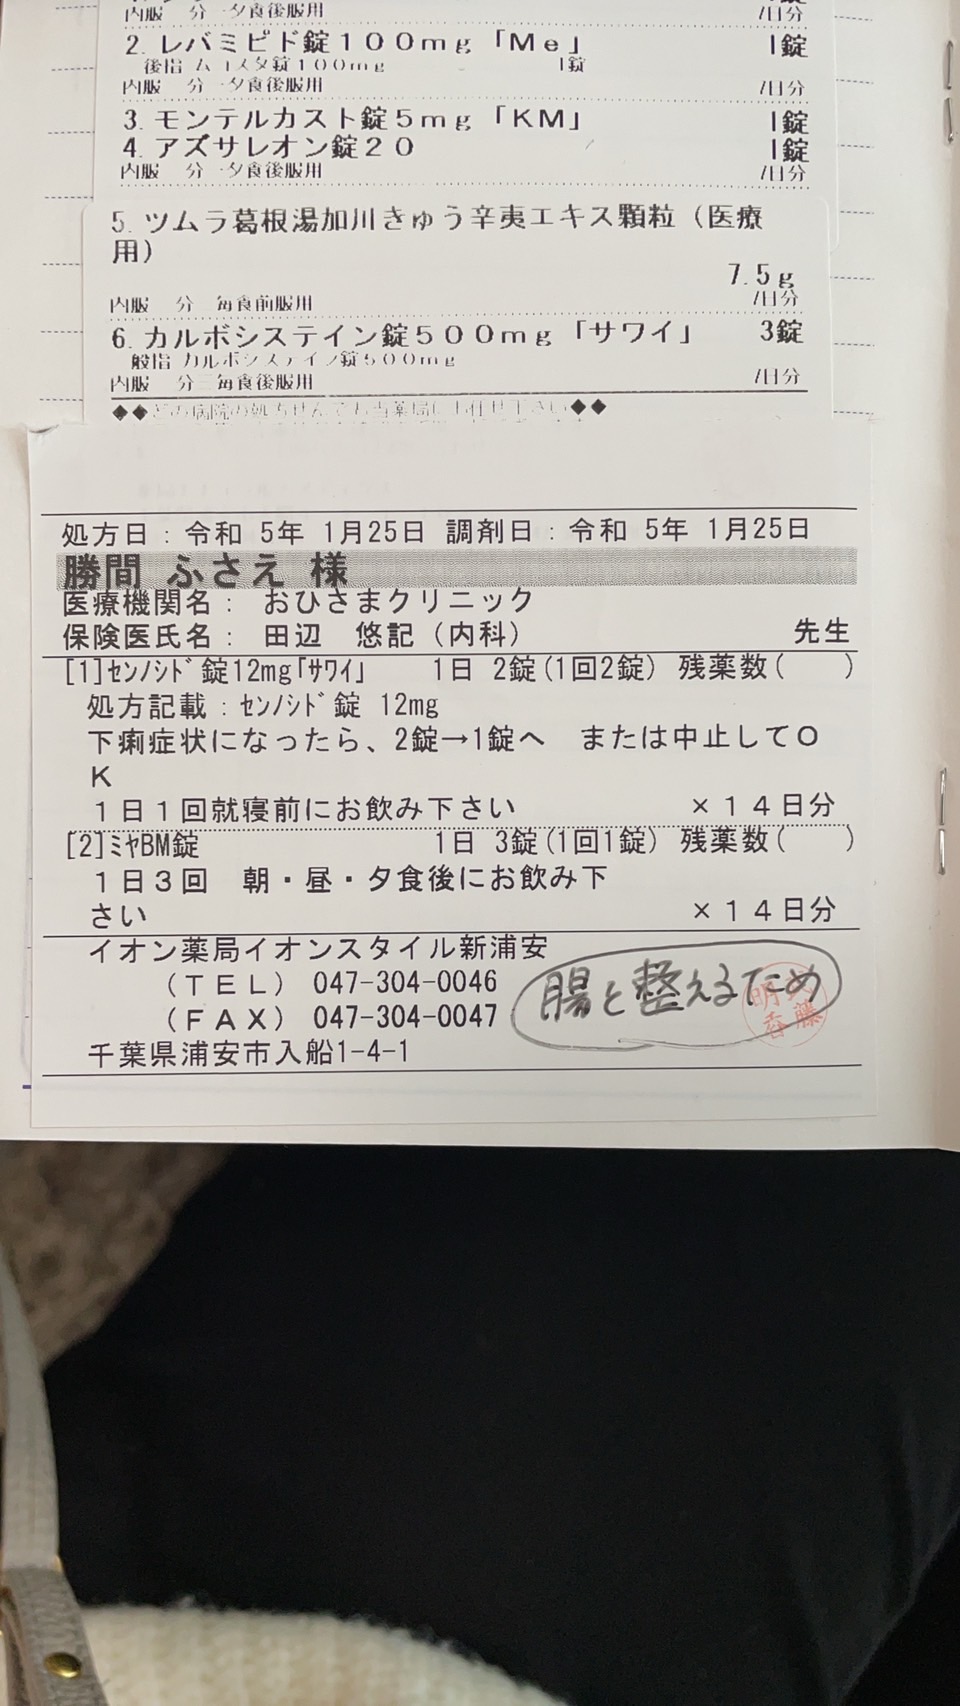 内服 分一夕食後服用 /1日分
2. レバミピド錠１００ｍｇ「Ｍｅ」 1錠
後指 ムコスタ錠１００ｍｇ 1錠
内服 分一夕食後服用 /1日分
3. モンテルカスト錠５ｍｇ「ＫＭ」 1錠
4. アズサレオン錠２０ 1錠
内服 分一夕食後服用 /1日分
5. ツムラ葛根湯加川きゅう辛夷エキス顆粒（医療
用）
7.5ｇ
内服 分三毎食前服用 /1日分
6. カルボシステイン錠５００ｍｇ「サワイ」 3錠
般指 カルボシステイン錠５００ｍｇ
内服 分三毎食後服用 /1日分
◆◆どの病院の処方せんでも当薬局にお任せ下さい◆◆
処方日：令和 5年 1月25日 調剤日：令和 5年 1月25日
勝間 ふさえ 様
医療機関名： おひさまクリニック
保険医氏名： 田辺 悠記（内科） 先生
[1]ｾﾝﾉｼﾄﾞ錠12mg｢ｻﾜｲ｣ 1日 2錠(1回2錠) 残薬数( )
処方記載：ｾﾝﾉｼﾄﾞ錠 12mg
下痢症状になったら、2錠→1錠へ または中止してＯ
Ｋ
１日１回就寝前にお飲み下さい ×１４日分
[2]ﾐﾔBM錠 1日 3錠(1回1錠) 残薬数( )
１日３回 朝・昼・夕食後にお飲み下
さい ×１４日分
イオン薬局イオンスタイル新浦安
（ＴＥＬ） 047-304-0046
（ＦＡＸ） 047-304-0047
腸を整えるため
千葉県浦安市入船1-4-1